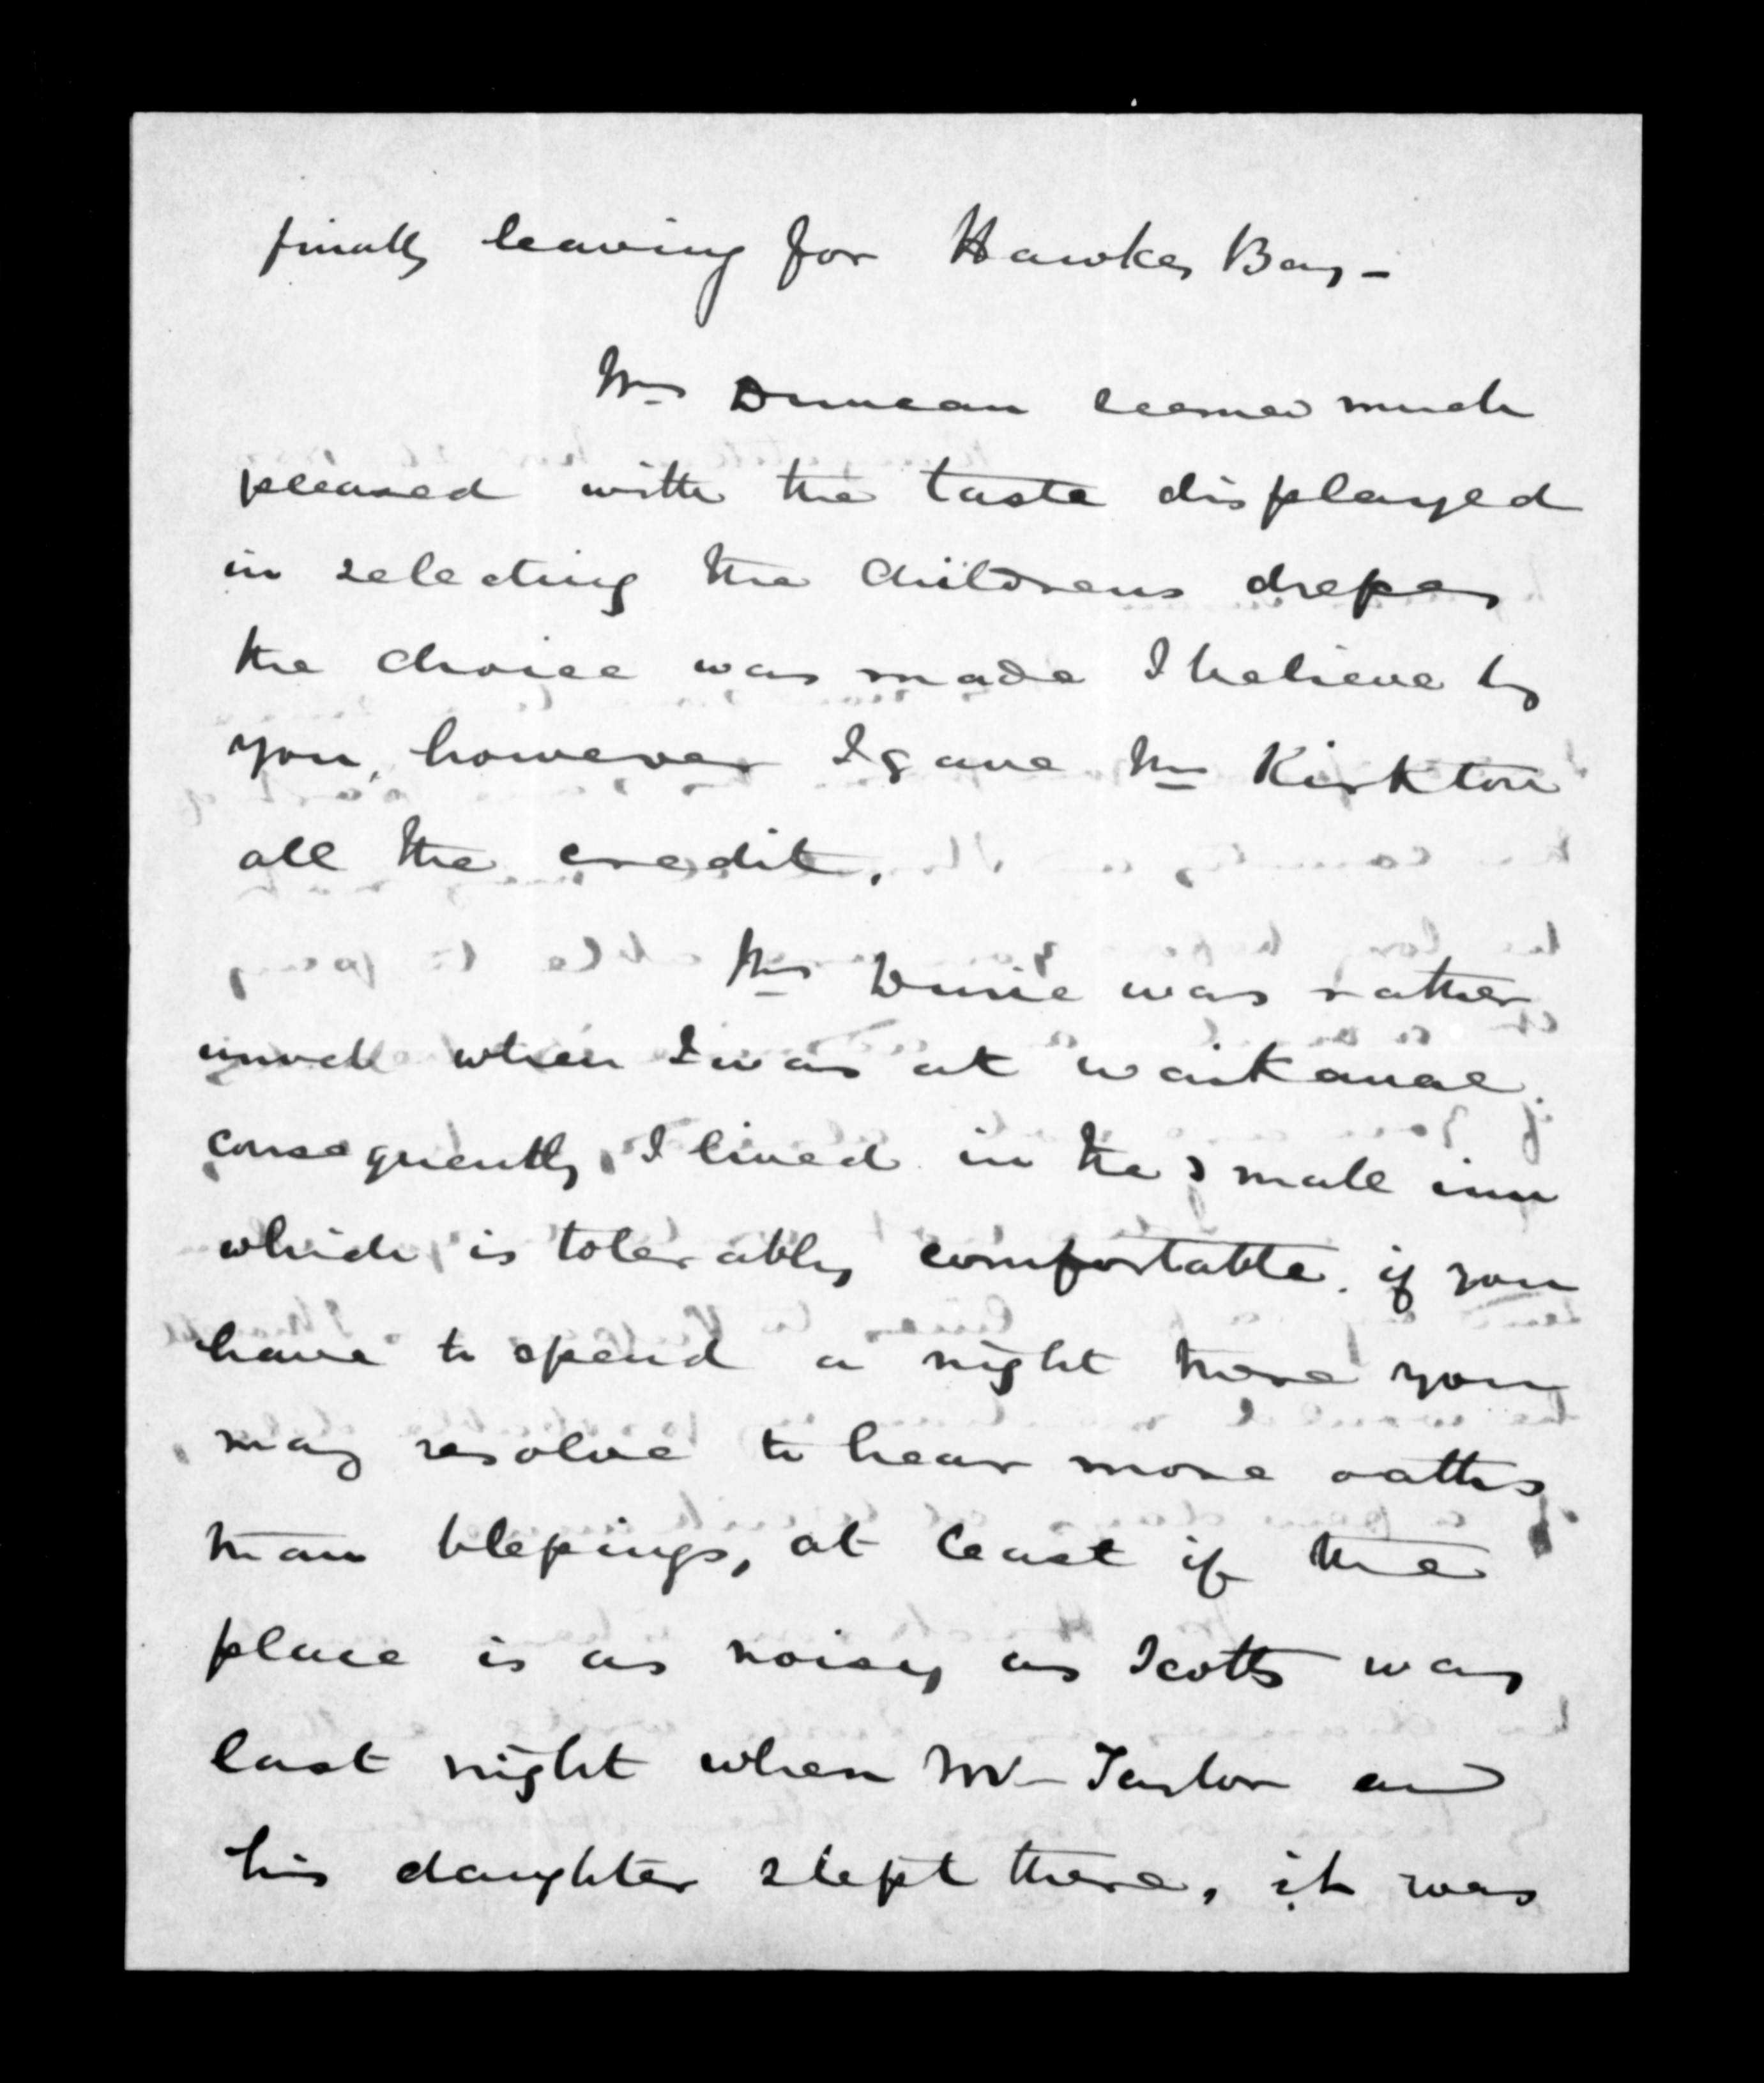 finally leaving for Hawkes Bay -
Mrs Duncan seemed much
pleased with the taste displayed
in selecting the Childrens dresses
the choice was made I believe by
you, however I gave Mrs Kirkton
all the credit.
Mrs Durie was rather
unwell when I was at Waikanae.
consequently, I lived in the small inn
which is tolerably comfortable. if you
have to spend a night there you
may resolve to hear more oaths
than blessings, at least if the
place is as noisy as Scotts was
last night when Mr Taylor and
his daughter slept there, it was